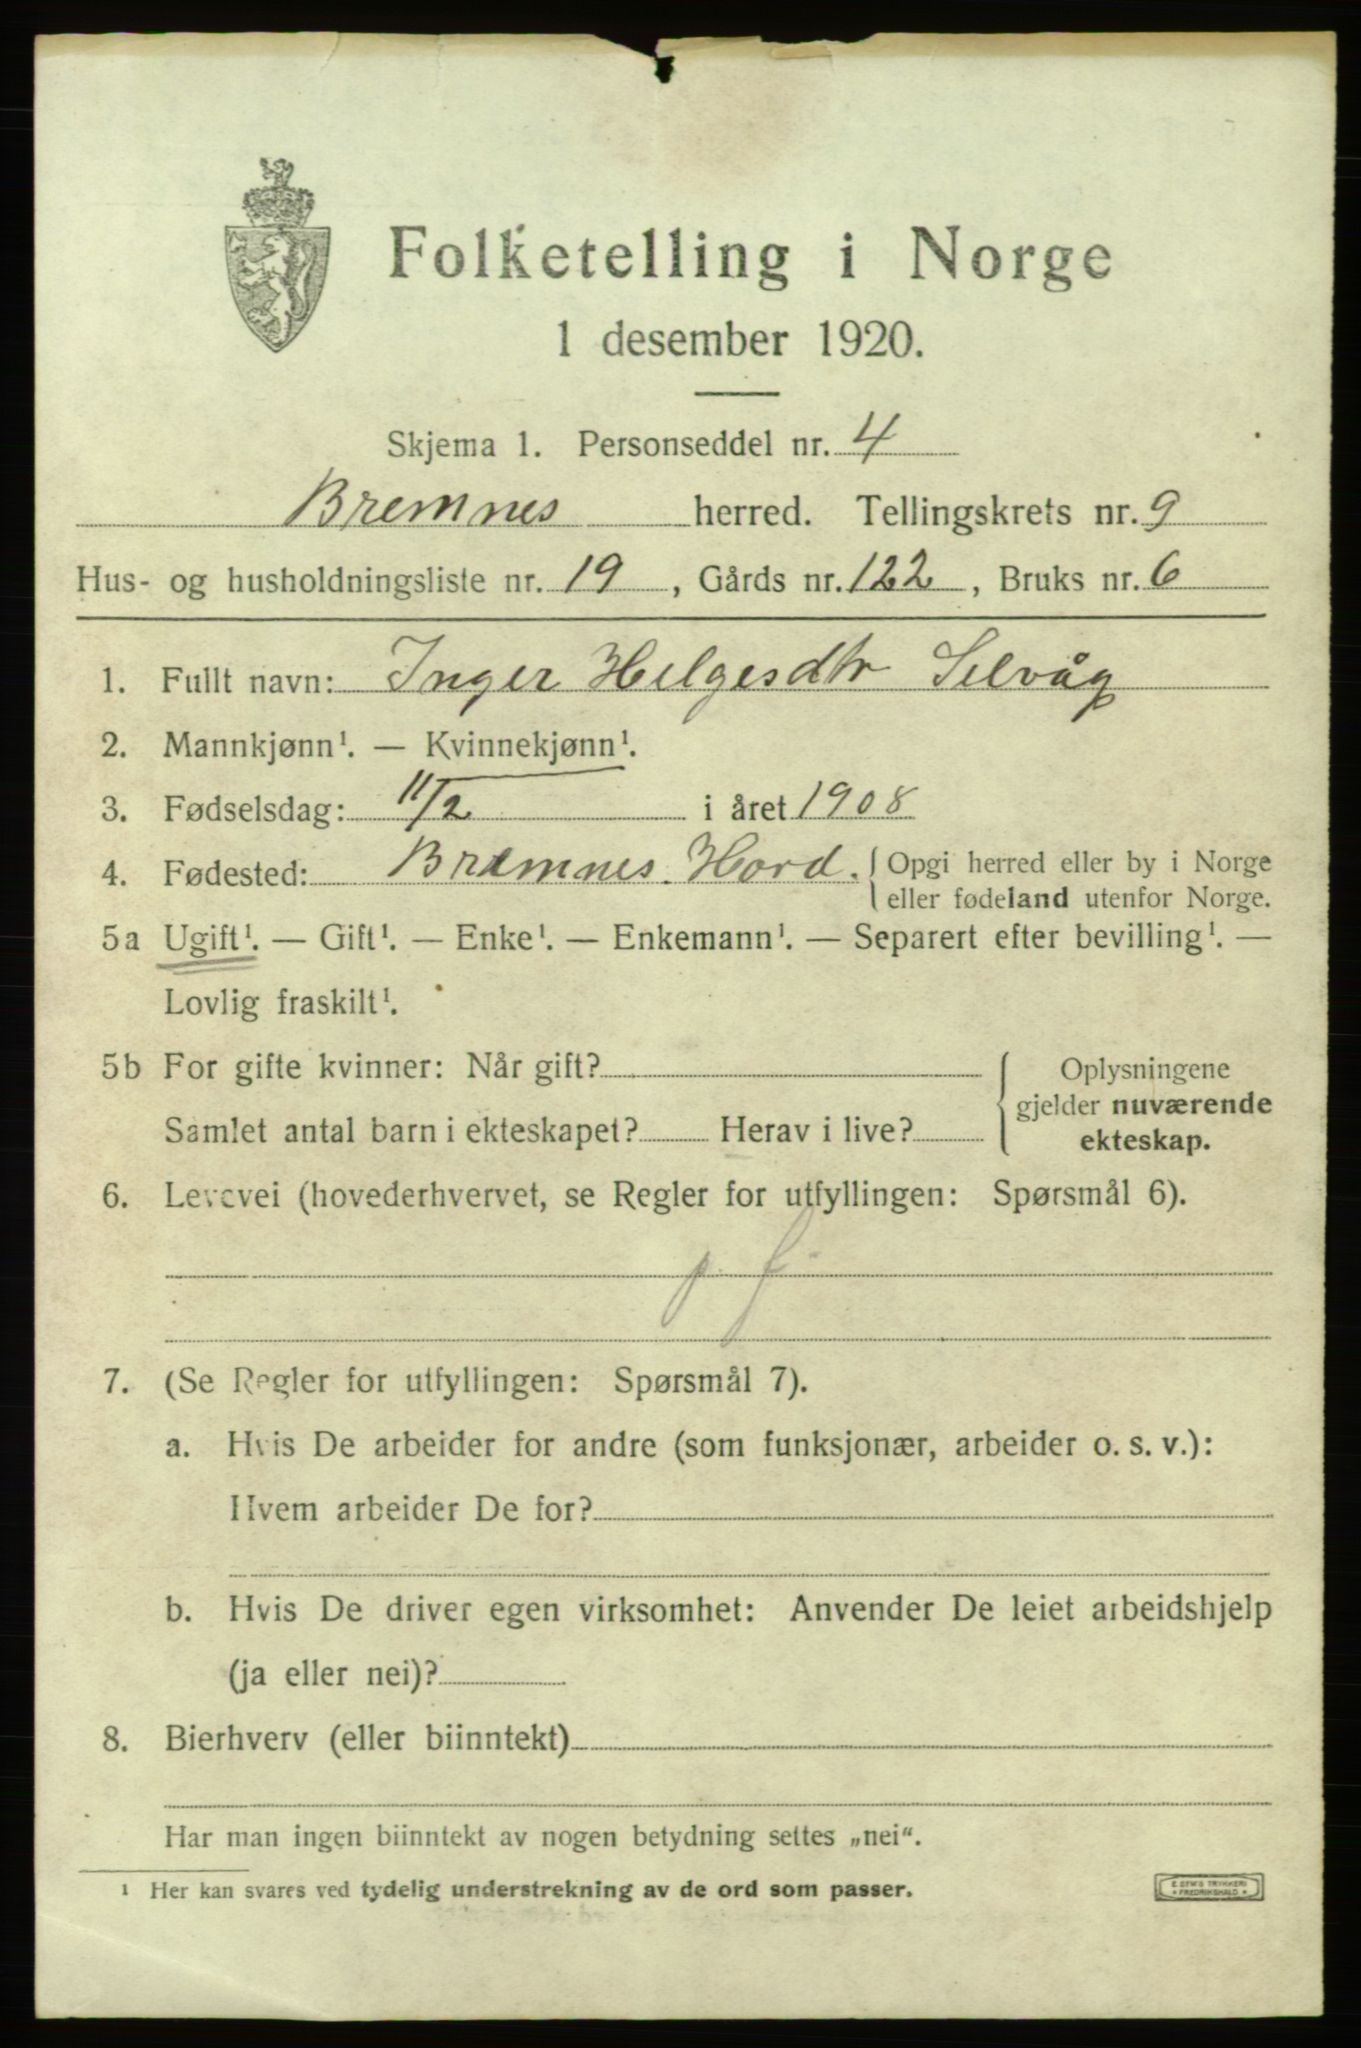 Folketelling i Norge
1 desember 1920.
Skjema 1. Personseddel nr. 4
Bremnes herred. Tellingskrets nr. 9
Hus- og husholdningsliste nr. 19, Gårds nr. 122, Bruks nr. 6
1. Fullt navn: Inger Helgesdtr Selvåg
2. Mannkjønn¹. — Kvinnekjønn¹.
3. Fødselsdag: 11/2 i året 1908
4. Fødested: Bremnes. Hord. { Opgi herred eller by i Norge
eller fødeland utenfor Norge.
5a Ugift¹. — Gift¹. — Enke¹. — Enkemann¹. — Separert efter bevilling¹. —
Lovlig fraskilt¹.
5b For gifte kvinner: Når gift?
Samlet antal barn i ekteskapet? Herav i live?
Oplysningene
gjelder nuværende
ekteskap.
6. Levevei (hovederhvervet, se Regler for utfyllingen: Spørsmål 6).
7. (Se Regler for utfyllingen: Spørsmål 7).
a. Hvis De arbeider for andre (som funksjonær, arbeider o. s. v.):
Hvem arbeider De for?
b. Hvis De driver egen virksomhet: Anvender De leiet arbeidshjelp
(ja eller nei)?
8. Bierhverv (eller biinntekt)
Har man ingen biinntekt av nogen betydning settes „nei“.
¹ Her kan svares ved tydelig understrekning av de ord som passer.